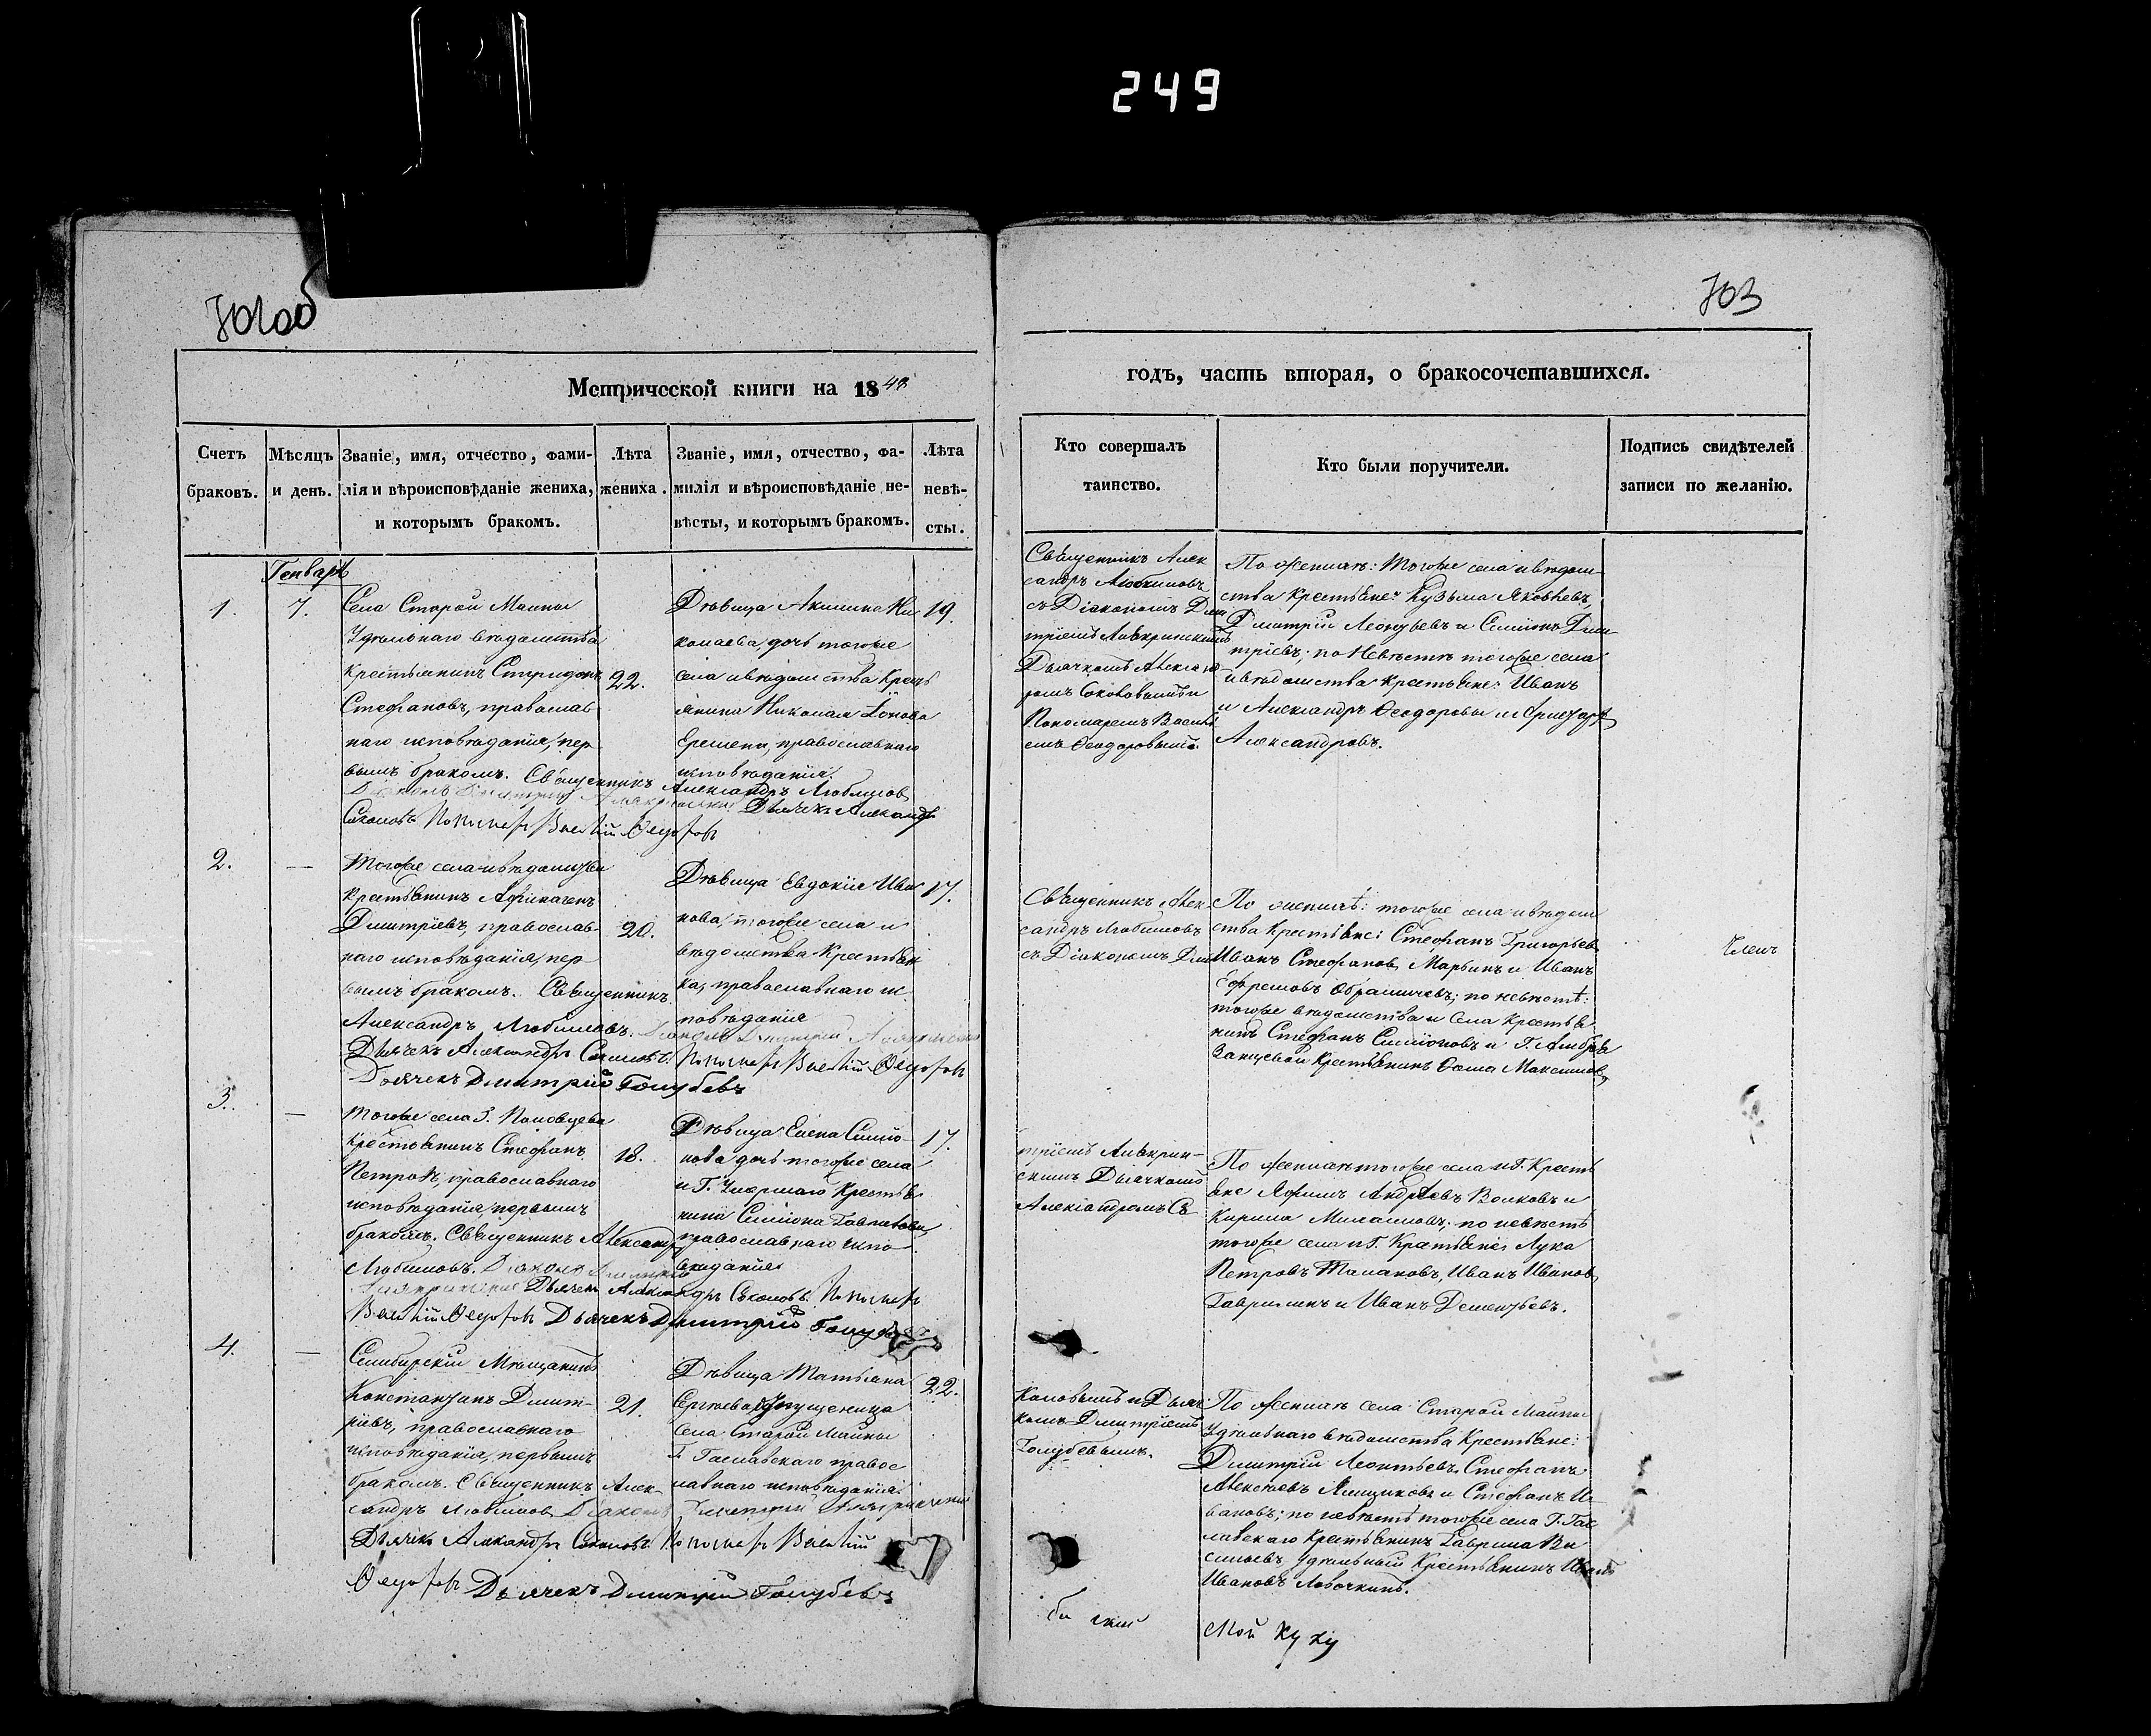 249
702об
703
Метрической книги на 1848
годъ, часть вторая, о бракосочетавшихся.
Счетъ браковъ.
Мѣсяцъ и день.
Званіе, имя, отчество, фами-
лія и вѣроисповѣданіе жениха,
и которымъ бракомъ.
Лѣта
жениха.
Званіе, имя, отчество, фа-
милія и вѣроисповѣданіе не-
вѣсты, и которымъ бракомъ.
Лѣта
невѣ-
сты.
Кто совершалъ
таинство.
Кто были поручители.
Подпись свидѣтелей
записи по желанію.
Генварь
1.
7.
Села Старой Маины
Удѣльнаго вѣдомства
Крестьянинъ Спиридонъ
Стефановъ, православ
наго исповѣданія, пер
вымъ бракомъ. Священникъ Александръ Любимовъ
Діаконъ Димитрій
Дьячекъ Александръ
Соколовъ Пономарь Василій Ѳедоровъ
22.
Дѣвица Акилина Ни
колаева, дочь тогоже
села и вѣдомства Крест
янина Николая
Еремина, православнаго
исповѣданія.
19.
Священникъ Алек
сандръ Любимовъ
съ Діакономъ Дим
тріемъ Алякринскимъ
Дьячкомъ Алексан
дромъ Соколовымъ и
Пономаремъ Васил
емъ Ѳеодоровымъ.
По женихѣ: тогоже села и вѣдом
ства Крестьяне: Кузьма Яковлевъ,
Димитрій Леонтьевъ и Симіонъ Дми
тріевъ; по невѣстѣ тогоже села
и вѣдомства крестьяне: Иванъ
и Александръ Ѳеодоровы и Григорій
Александровъ.
2.
—
Тогоже села и вѣдомства
Крестьянинъ
Димитріевъ, православ-
наго исповѣданія, пер
вымъ бракомъ. Священникъ
Александръ Любимовъ. Діаконъ Димитрій Алякринскій
Дьячекъ Александръ Соколовъ. Пономарь Василій Ѳедоровъ
Дьячекъ Димитрій Голубевъ
20.
Дѣвица Евдокія Ива
нова, тогоже села и
вѣдомства Крестьян
ка, православнаго ис
повѣданія
17.
Священникъ Алек-
сандръ Любимовъ
съ Діакономъ Дим
По женихѣ: тогоже села и вѣдом
ства Крестьяне: Стефанъ Григорьевъ
Иванъ Стефановъ Марьинъ и Иванъ
Ефремовъ; по невѣстѣ:
тогоже вѣдомства и села Крестья
нинъ Стефанъ Симіоновъ и Г.
Крестьянинъ Ѳома Максимовъ
3.
—
Тогоже села Г.
Крестьянинъ Стефанъ
Петровъ, православнаго
исповѣданія, первымъ
бракомъ. Священникъ Александръ
Любимовъ. Діаконъ Димитрій
Алякринскій Дьячекъ Александръ Соколовъ. Пономарь
Василій Ѳедоровъ Дьячекъ Димитрій Голубевъ
18.
Дѣвица Елена Симіо-
нова дочь тогоже села
и Г. Умершаго Крестья
нина Симіона
православнаго испо
вѣданія
17.
тріемъ Алякрин-
скимъ Дьячкомъ
Александромъ Со
По женихѣ тогоже села и Г. Кресть
яне Яфимъ Андреевъ Волковъ и
Кирила Михаиловъ; по невѣстѣ
тогоже села и Г. Крестьяне: Лука
Петровъ Талановъ, Иванъ Ивановъ
Гаврилинъ и Иванъ Дементьевъ.
4.
—
Симбирскій Мѣщанинъ
Константинъ Димит-
ріевъ, православнаго
исповѣданія, первымъ
бракомъ. Священникъ Алек-
сандръ Любимовъ Діаконъ Димитрій Алякринскій
Дьячекъ Александръ Соколовъ Пономарь Василій
Ѳедоровъ Дьячекъ Димитрій Голубевъ
21.
Дѣвица Татьяна
Сергѣева
села Старой Маины
Г. правос
лавнаго исповѣданія.
22.
коловымъ и Дьяч
комъ Димитріемъ
Голубевымъ.
По женихѣ села Старой Маины
Удѣльнаго вѣдомства Крестьяне:
Димитрій Леонтьевъ, Стефанъ
Алексѣевъ Ямщиковъ и Стефанъ И-
вановъ; по невѣстѣ тогоже села Г.
Крестьянинъ Гаврила Ва
сильевъ, Удѣльный Крестьянинъ Иванъ
Ивановъ Ловочкинъ.